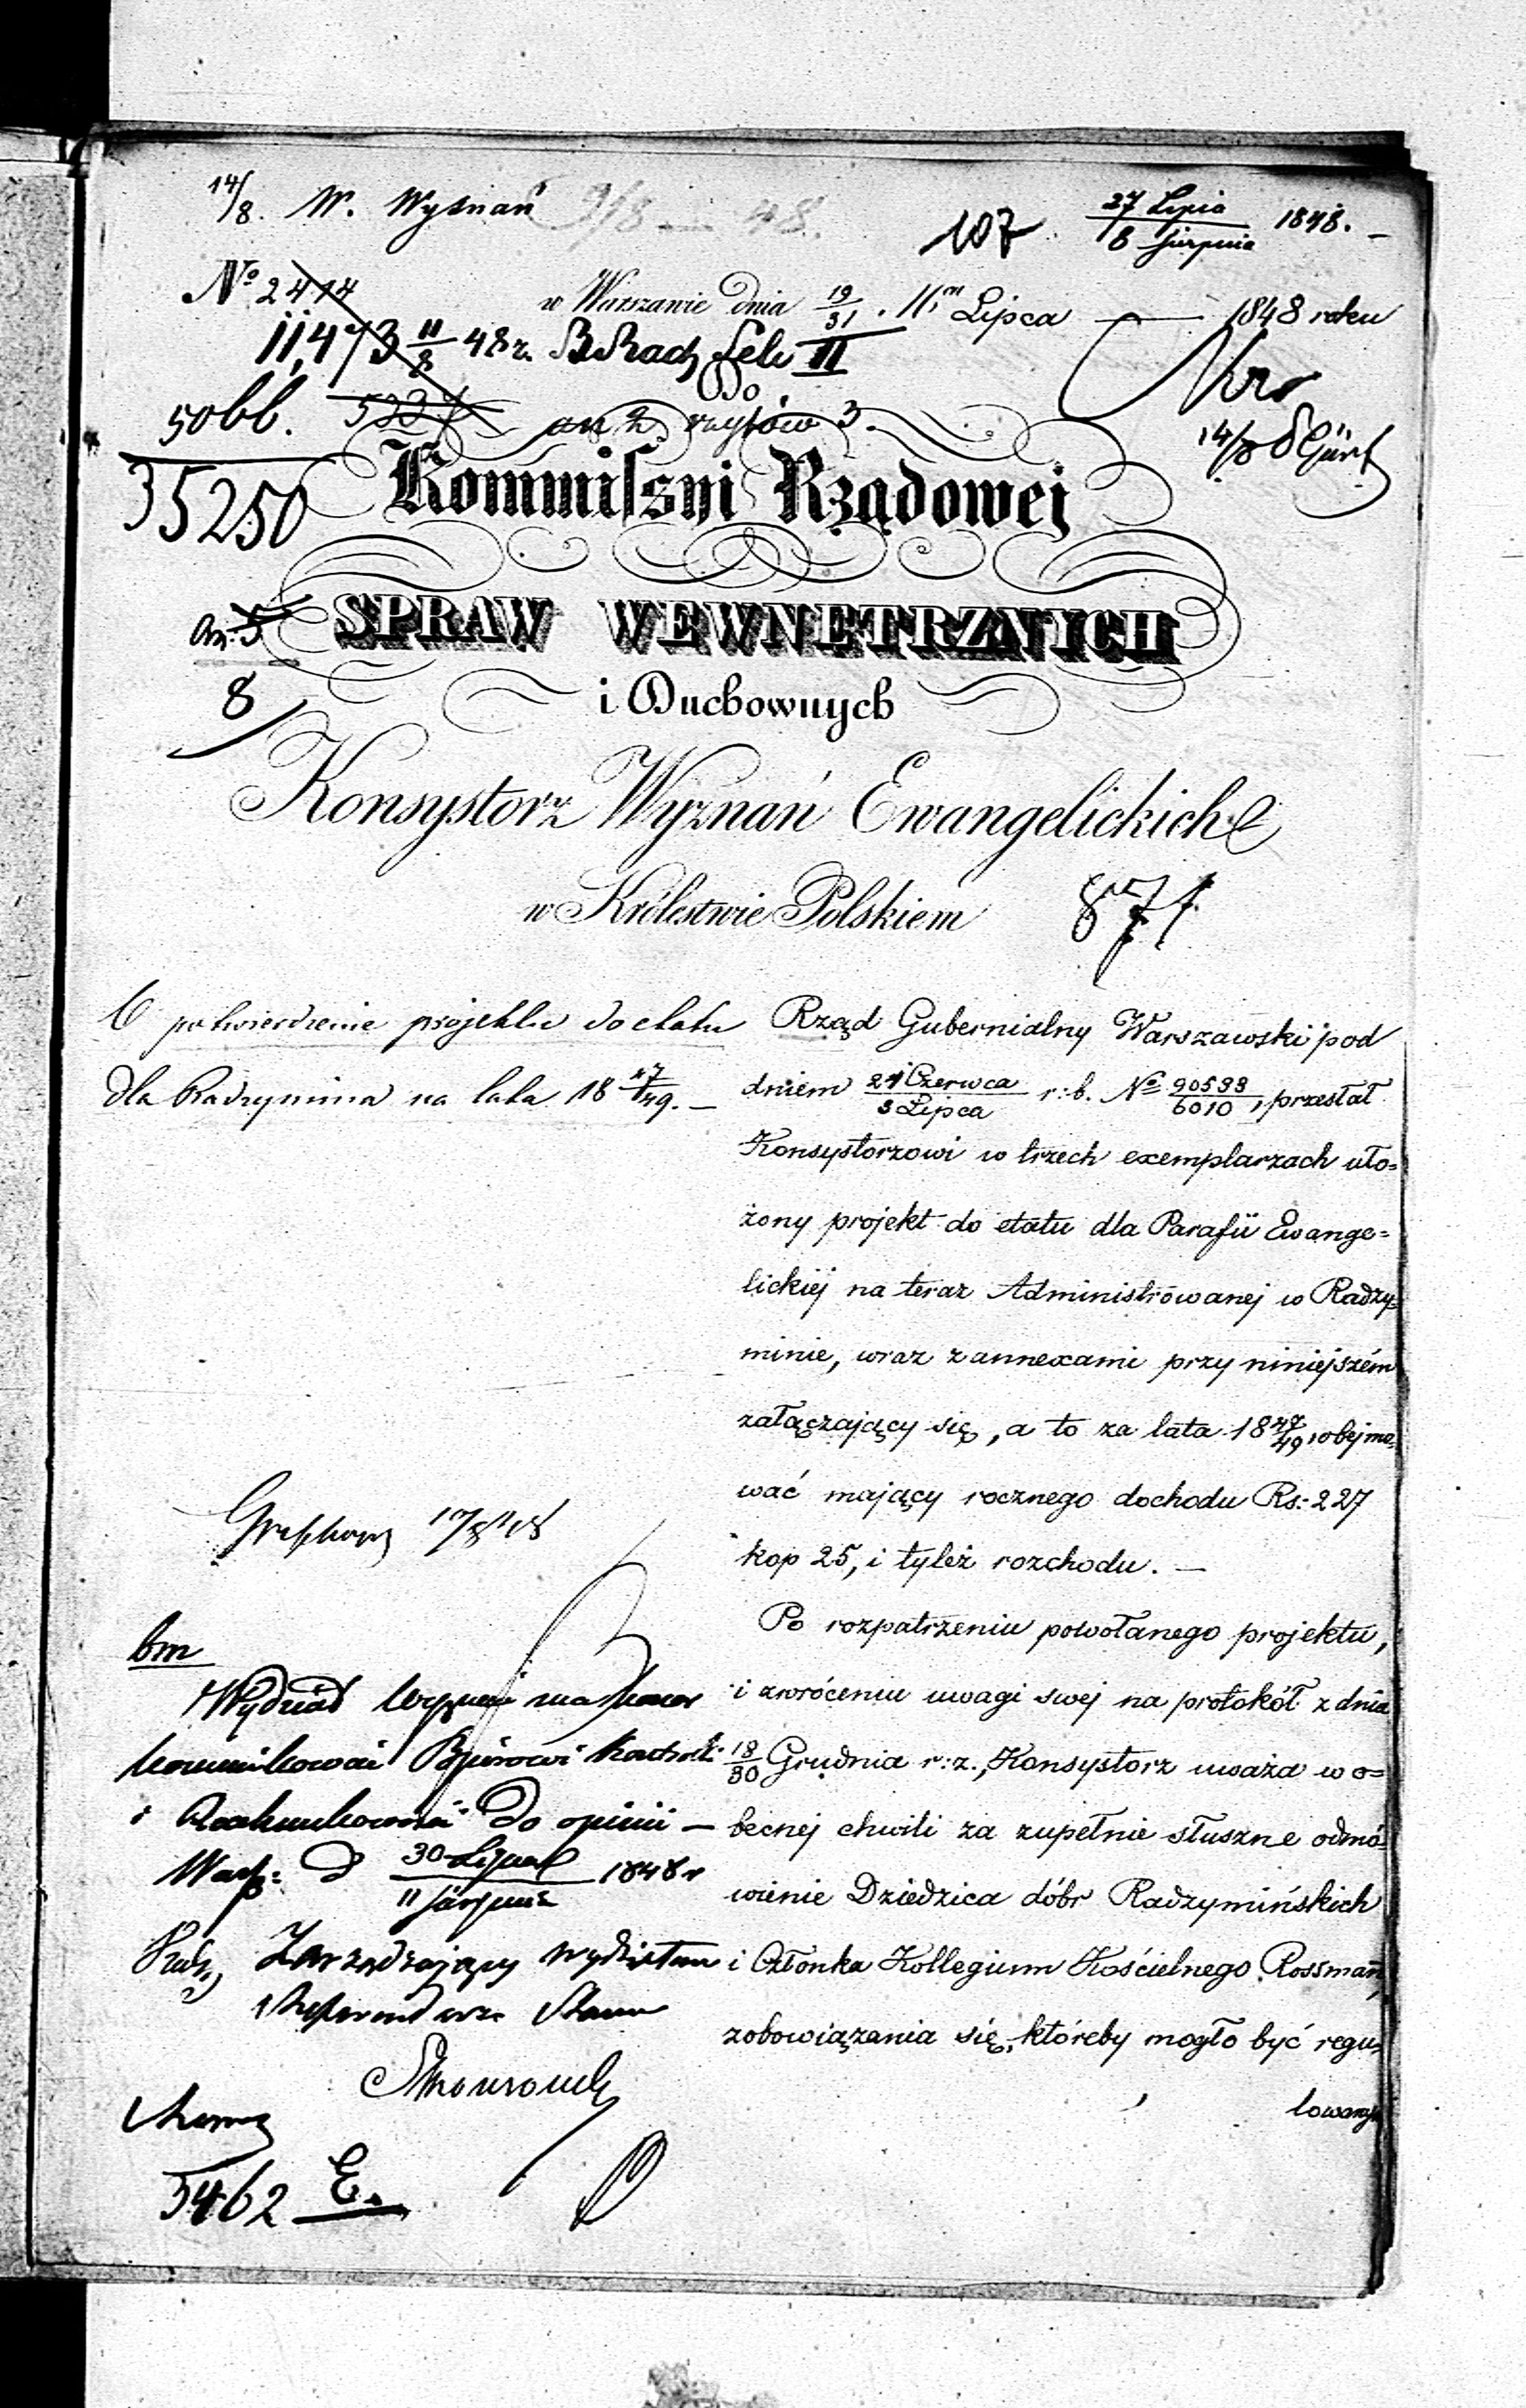 14/8. W. Wyznań 9/8 — 48.
107. 27 Lipca / 8 Sierpnia 1848. –
No 2414
w Warszawie dnia 19/31. Lipca — 1848 roku
11,473 11/8 48 r. Sek II
Do
50bb. 3.
14/8
35250
Kommissyi Rządowej
an. 5
SPRAW WEWNĘTRZNYCH
8
i Duchownych
Konsystorz Wyznań Ewangelickich
w Królestwie Polskiem 871
O potwierdzenie projektu do etatu
dla Radzymina na lata 18 47/49. –
Rząd Gubernialny Warszawski pod
dniem 21 Czerwca / 3 Lipca r: b. No 90533/6010, przesłał
Konsystorzowi w trzech exemplarzach uło=
żony projekt do etatu dla Parafii Ewange=
lickiéj na teraz Administrowanej w Radzy=
minie, wraz z annexami przy niniejszém
załączający się, a to za lata 18 47/49, obejmo=
wać mający rocznego dochodu Rs: 227
kop 25, i tyleż rozchodu. —
Po rozpatrzeniu powołanego projektu,
i zwróceniu uwagi swej na protokół z dnia
18/30 Grudnia r: z., Konsystorz uważa w o=
becnej chwili za zupełnie słuszne odmó=
wienie Dziedzica dóbr Radzymińskich
i Członka Kollegium Kościelnego Rossman,
zobowiązania się, któreby mogło być regu=
lowany
bm
Wydział Wyznań ma honor
kommunikować Biórowi Kontroli
i Rachunkowości do opinii —
Warsz: d 30 Lipca / 11 Sierpnia 1848 r
Zarządzający Wydziałem
Referendarz Stanu
5462 E.